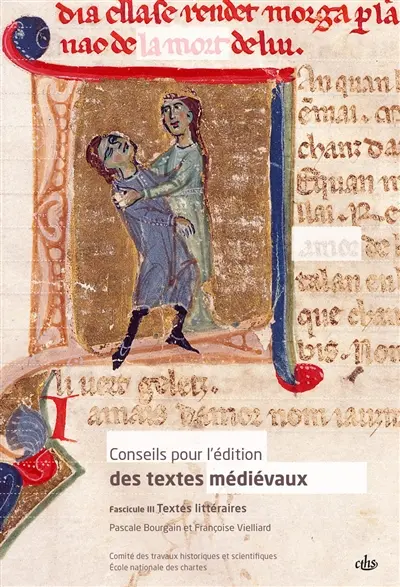 dia ellase rendet morga p la
nao de la mort de lui.
An quan l
chanz da
Quan m
amor de l
talan en
que chan
vis. Non
Iamais damor nom iau
Conseils pour l'édition
des textes médiévaux
Fascicule III Textes littéraires
Pascale Bourgain et Françoise Vielliard
cths
Comité des travaux historiques et scientifiques
École nationale des chartes